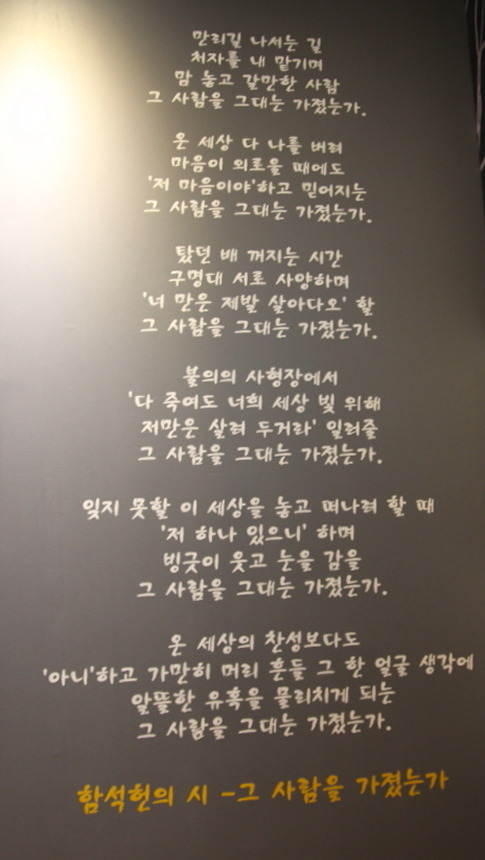 만리길 나서는 길
처자를 내 맡기며
맘 놓고 갈만한 사람
그 사람을 그대는 가졌는가.
온 세상 다 나를 버려
마음이 외로울 때에도
'저 마음이야'하고 믿어지는
그 사람을 그대는 가졌는가.
탔던 배 꺼지는 시간
구명대 서로 사양하며
'너 만은 제발 살아다오' 할
그 사람을 그대는 가졌는가.
불의의 사형장에서
'다 죽여도 너희 세상 빛 위해
저만은 살려 두거라' 일러줄
그 사람을 그대는 가졌는가.
잊지 못할 이 세상을 놓고 떠나려 할 때
'저 하나 있으니' 하며
빙긋이 웃고 눈을 감을
그 사람을 그대는 가졌는가.
온 세상의 찬성보다도
'아니'하고 가만히 머리 흔들 그 한 얼굴 생각에
알뜰한 유혹을 물리치게 되는
그 사람을 그대는 가졌는가.
함석헌의 시 -그 사람을 가졌는가